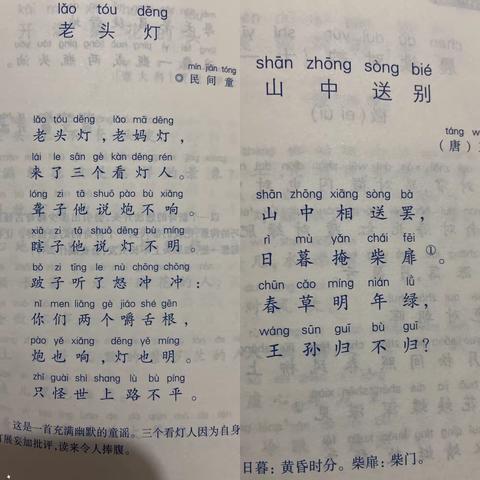 lǎo tóu dēng
老头灯
mín jiān tóng
◎民间童
lǎo tóu dēng lǎo mā dēng
老头灯,老妈灯,
lái le sān gè kàn dēng rén
来了三个看灯人。
lóng zi tā shuō pào bù xiǎng
聋子他说炮不响。
xiā zi tā shuō dēng bù míng
瞎子他说灯不明。
bǒ zi tīng le nù chōng chōng
跛子听了怒冲冲:
nǐ men liǎng gè jiáo shé gēn
你们两个嚼舌根,
pào yě xiǎng dēng yě míng
炮也响,灯也明。
zhǐ guài shì shang lù bù píng
只怪世上路不平。
这是一首充满幽默的童谣。三个看灯人因为自身
展妄加批评,读来令人捧腹。
shān zhōng sòng bié
山中送别
táng w
(唐)
shān zhōng xiāng sòng bà
山中相送罢,
rì mù yǎn chái fēi
日暮掩柴扉①。
chūn cǎo míng nián lǜ
春草明年绿,
wáng sūn guī bù guī
王孙归不归?
日暮:黄昏时分。柴扉:柴门。